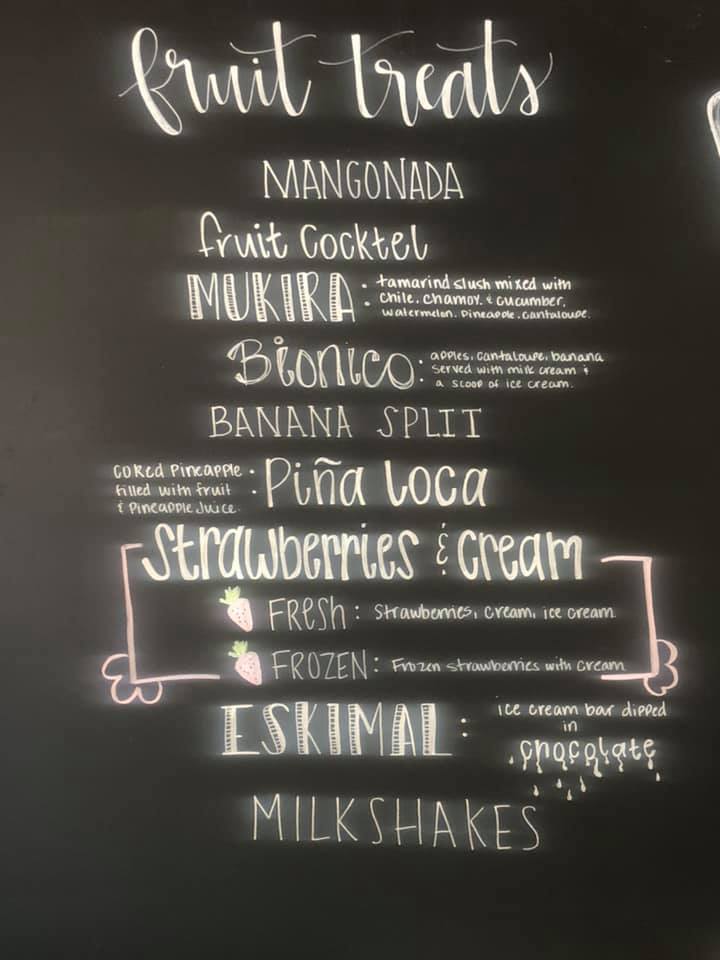 fruit treats
MANGONADA
fruit Cocktel
MUKIRA: tamarind slush mixed with
chile, chamoy, & cucumber,
watermelon, pineapple, cantaloupe.
Bionico: apples, cantaloupe, banana
served with milk cream &
a scoop of ice cream.
BANANA SPLIT
CORED PINEAPPLE
filled with fruit
& Pineapple Juice. : Piña loca
Strawberries & Cream
FResh: Strawberries, Cream, ice cream
FROZEN: Frozen strawberries with cream
ESKIMAL: ice cream bar dipped
in
chocolate
MILKSHAKES